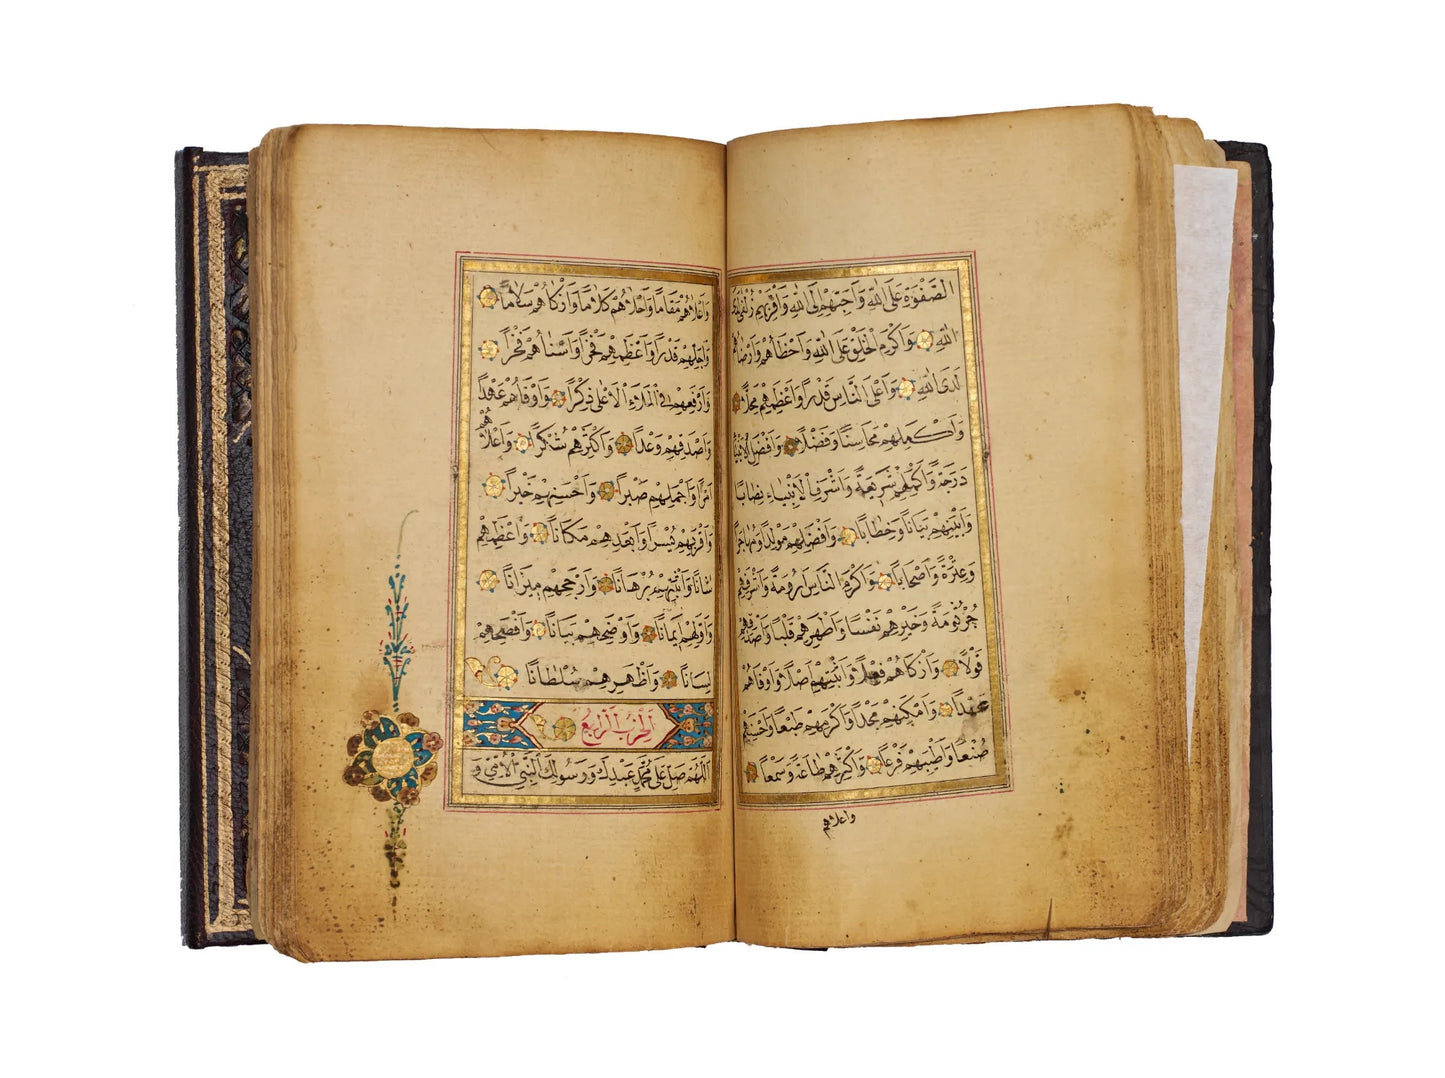 الصَّفْوَةِ عَلَى اللّٰهِ وَاَحَبِّهِمْ اِلَى اللّٰهِ وَاَقْرَبِهِمْ زُلْفٰى لَدَى
اللّٰهِ وَاَكْرَمِ الْخَلْقِ عَلَى اللّٰهِ وَاَحْظَاهُمْ وَاَرْضَاهُمْ
لَدَى اللّٰهِ وَاَعْلَى النَّاسِ قَدْرًا وَاَعْظَمِهِمْ مَحَلًّا
وَاَكْمَلِهِمْ مَحَاسِنًا وَفَضْلًا وَاَفْضَلِ الْاَنْبِيَاءِ
دَرَجَةً وَاَكْمَلِهِمْ شَرِيعَةً وَاَشْرَفِ الْاَنْبِيَاءِ نِصَابًا
وَاَبْيَنِهِمْ بَيَانًا وَخِطَابًا وَاَفْضَلِهِمْ مَوْلِدًا وَمُهَاجَرًا
وَعِتْرَةً وَاَصْحَابًا وَاَكْرَمِ النَّاسِ اَرُومَةً وَاَشْرَفِهِمْ
جُرْثُومَةً وَخَيْرِهِمْ نَفْسًا وَاَطْهَرِهِمْ قَلْبًا وَاَصْدَقِهِمْ
قَوْلًا وَاَزْكَاهُمْ فِعْلًا وَاَثْبَتِهِمْ اَصْلًا وَاَوْفَاهُمْ
عَهْدًا وَاَمْكَنِهِمْ مَجْدًا وَاَكْرَمِهِمْ طَبْعًا وَاَحْسَنِهِمْ
صُنْعًا وَاَطْيَبِهِمْ فَرْعًا وَاَكْثَرِهِمْ طَاعَةً وَسَمْعًا
واعلاهم
وَاَعْلَاهُمْ مَقَامًا وَاَحْلَاهُمْ كَلَامًا وَاَزْكَاهُمْ سَلَامًا
وَاَجَلِّهِمْ قَدْرًا وَاَعْظَمِهِمْ فَخْرًا وَاَسْنَاهُمْ فَخْرًا
وَاَرْفَعِهِمْ فِي الْمَلَاِ الْاَعْلٰى ذِكْرًا وَاَوْفَاهُمْ عَهْدًا
وَاَصْدَقِهِمْ وَعْدًا وَاَكْثَرِهِمْ شُكْرًا وَاَعْلَاهُمْ
اَمْرًا وَاَجْمَلِهِمْ صَبْرًا وَاَحْسَنِهِمْ خَيْرًا
وَاَقْرَبِهِمْ يُسْرًا وَاَبْعَدِهِمْ مَكَانًا وَاَعْظَمِهِمْ
شَانًا وَاَثْبَتِهِمْ بُرْهَانًا وَاَرْجَحِهِمْ مِيزَانًا
وَاَوَّلِهِمْ اِيمَانًا وَاَوْضَحِهِمْ بَيَانًا وَاَفْصَحِهِمْ
لِسَانًا وَاَظْهَرِهِمْ سُلْطَانًا
اَلْحِزْبُ الرَّابِعُ
اَللّٰهُمَّ صَلِّ عَلٰى مُحَمَّدٍ عَبْدِكَ وَرَسُولِكَ النَّبِيِّ الْاُمِّيِّ وَ